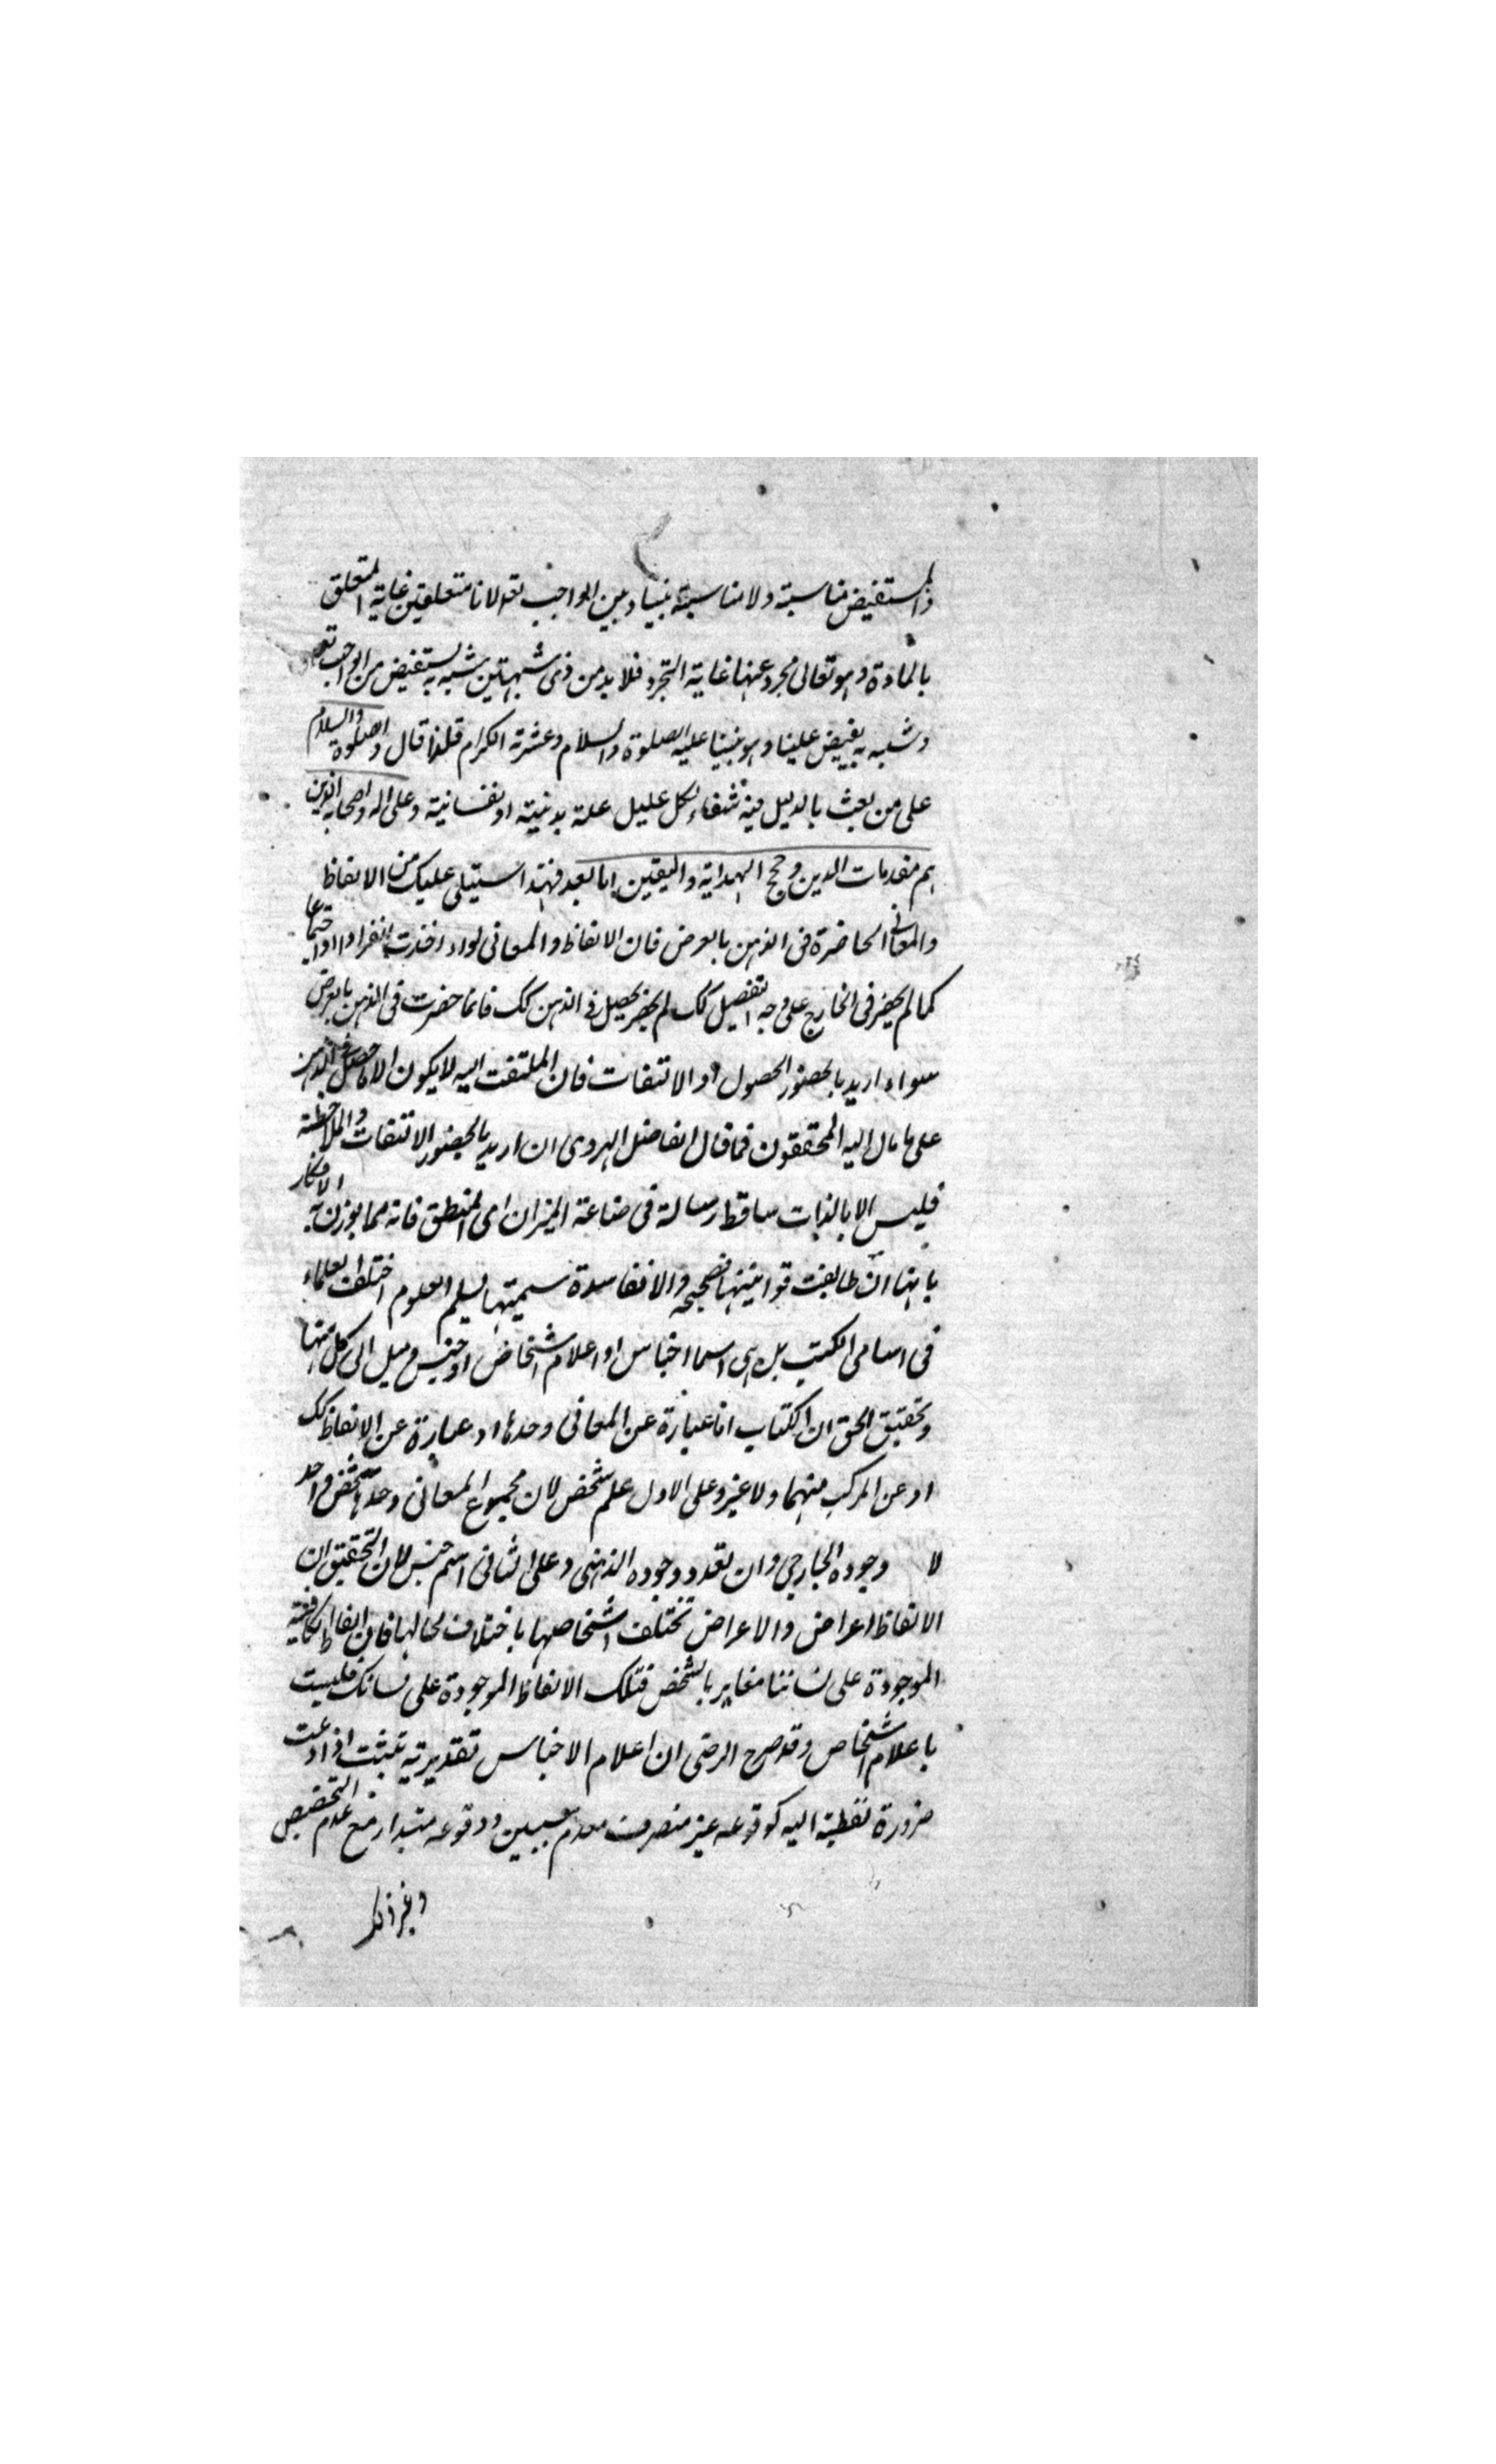 والمستفيض مناسبة ولا مناسبة بيننا وبين الواجب تعه لانا متعلقين غاية التعلق
بالمادة وهو تعالى مجرد عنها غاية التجرد فلا بد من ذى شبهتين شبه به يستفيض من الواجب تعه
وشبه به يفيض علينا وهو نبينا عليه الصلوة والسلام وعشرته الكرام قلذا قال والصلوة والسلام
على من بعث بالدليل فيه شفاء لكل عليل علة بدنية او نفسانية وعلى اله واصحابه الذين
هم مقدمات الدين وحجج الهداية واليقين اما بعد فهذا استيلى عليك من الالفاظ
والمعانى الحاضرة فى الذهن بالعرض فان الالفاظ والمعانى لواردافذت انفرادا او اجتماعا
كما لم يحضر فى الخارج على وجه التفصيل كك لم يحضر يحصل فى الذهن كك فانما حضرت فى الذهن بالعرض
سواء اريد بالحضور الحصول او الالتفات فان الملتفت اليه لا يكون الا ما حصل فى الذهن
على ما مال اليه المحققون فما قال الفاضل الهروى ان اريد بالحضور الالتفات والملاحظة
فليس الا بالذات ساقط رسالة فى صناعة الميزان اى المنطق فانه مما يوزن به الافكار
بانها ان طابقت قوانينها فصحيحه والا ففاسدة سميتها بسلم العلوم اختلف العلماء
فى اسامى الكتب بل هى اسما اجناس او اعلام اشخاص او جنس وميل الى كل منها
وتحقيق الحق ان الكتاب اما عبارة عن المعانى وحدها او عبارة عن الالفاظ كك
او عن المركب منهما ولا غيز وعلى الاول علم شخص لان مجموع المعانى وحدها شخص واحد
لا وجوده الخارجى وان تعدد وجوده الذهنى وعلى الثانى اسم جنس لان التحقيق ان
الالفاظ اعراض والاعراض تختلف اشخاصها باختلاف محالها فان الفاظ الكافية
الموجودة على لساننا مغاير بالشخص فتلك الالفاظ الموجودة على لسانك فليست
باعلام اشخاص وقد صرح الرضى ان اعلام الاجناس تقديرية تثبت اذا دعت
ضرورة لفظية اليه كوقوعه غير منصرف معدم سببين ووقوعه مبتدا مع عدم التخصيص
وغير ذلك